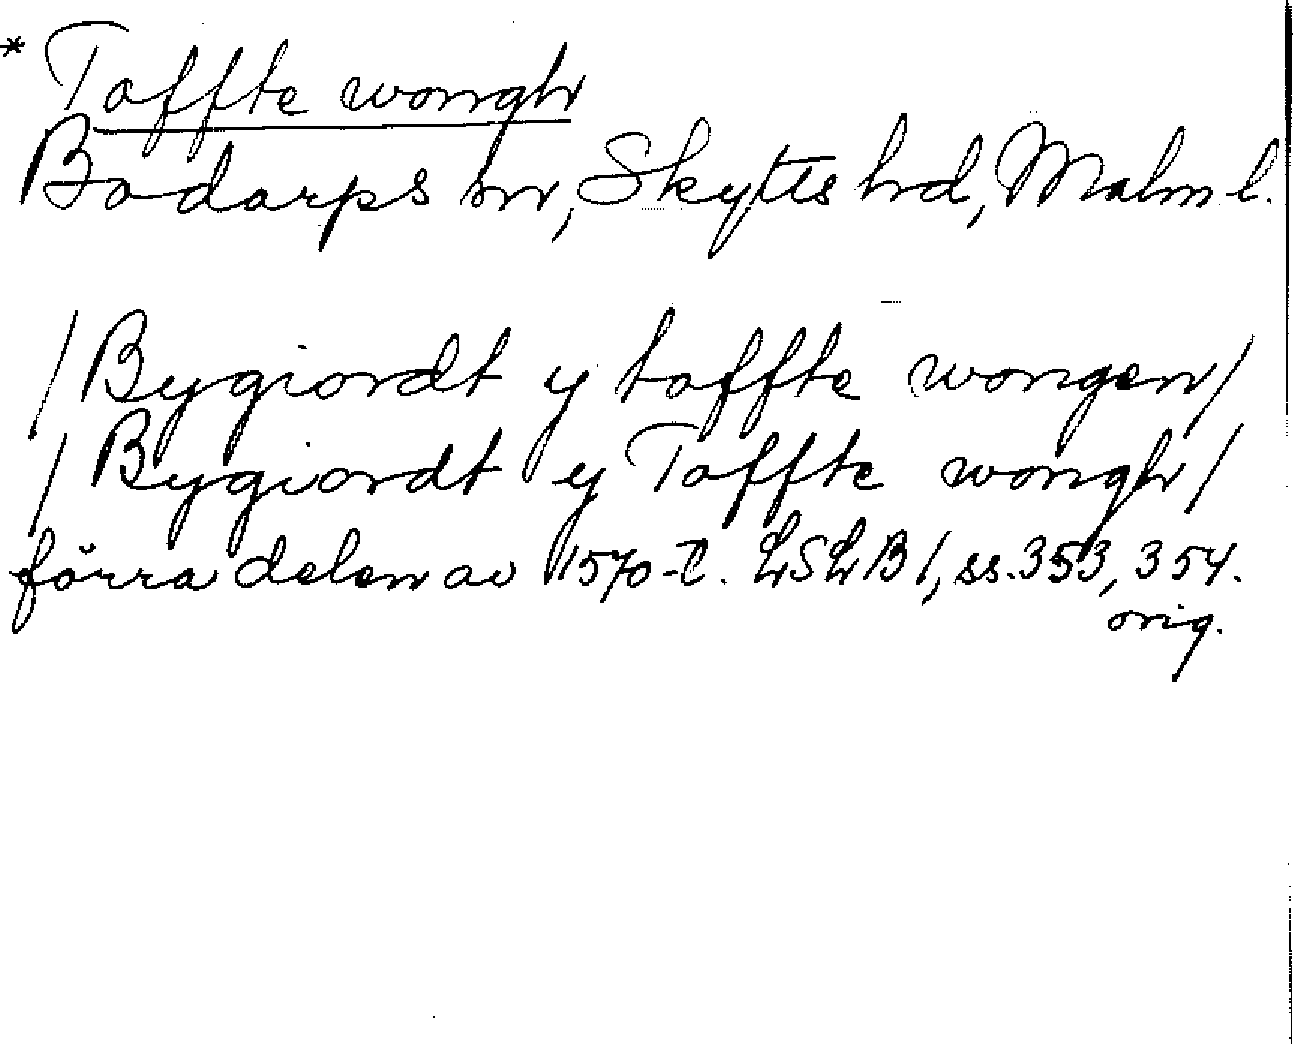 * Toffte wongh
Bodarps sn, Skytts hd, Malm l.
/Bygiordt y toffte wongen/
/Bygiordt y Toffte wongh/
förra delen av 1570-t. LSLB 1, ss. 353, 354.
orig.